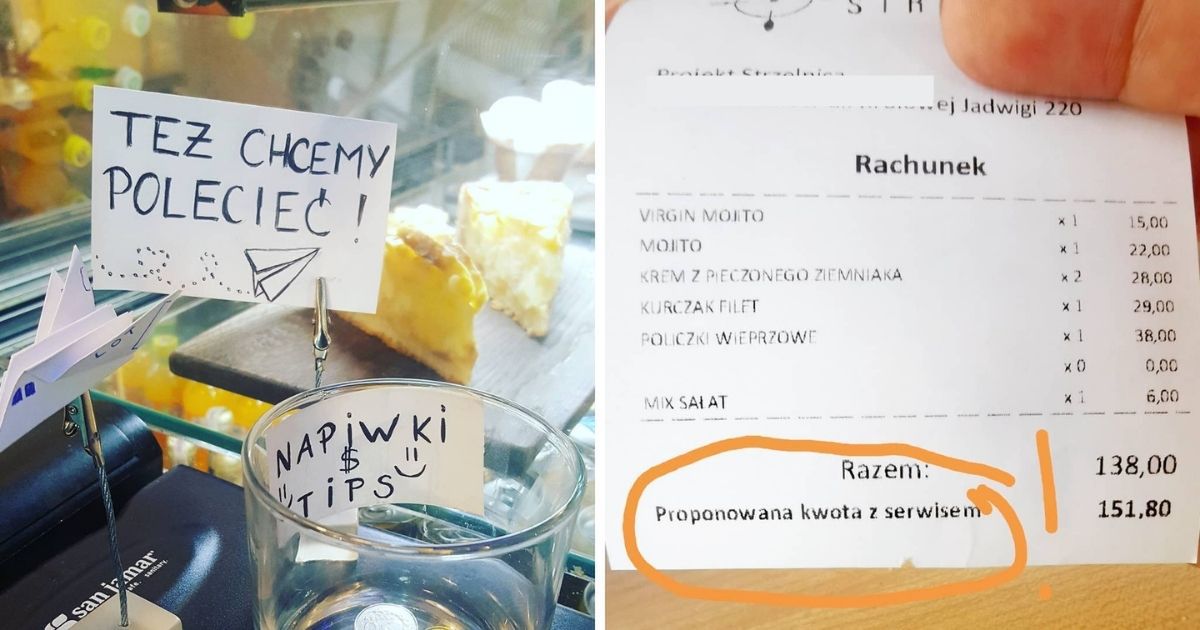 TEŻ CHCEMY
POLECIEĆ!
NAPiWKi
$
TiPS
san jamar
safe. sanitary.
STR
Projekt Strzelnica
ej Jadwigi 220
Rachunek
VIRGIN MOJITO x 1 15,00
MOJITO x 1 22,00
KREM Z PIECZONEGO ZIEMNIAKA x 2 28,00
KURCZAK FILET x 1 29,00
POLICZKI WIEPRZOWE x 1 38,00
x 0 0,00
MIX SAŁAT x 1 6,00
Razem: 138,00
Proponowana kwota z serwisem 151,80
!